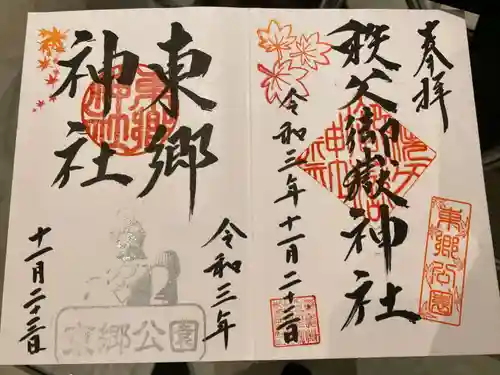 奉拝
秩父御嶽神社
令和三年十一月二十三日
東郷公園
東郷
神社
令和三年
十一月二十三日
東郷公園
東郷神社